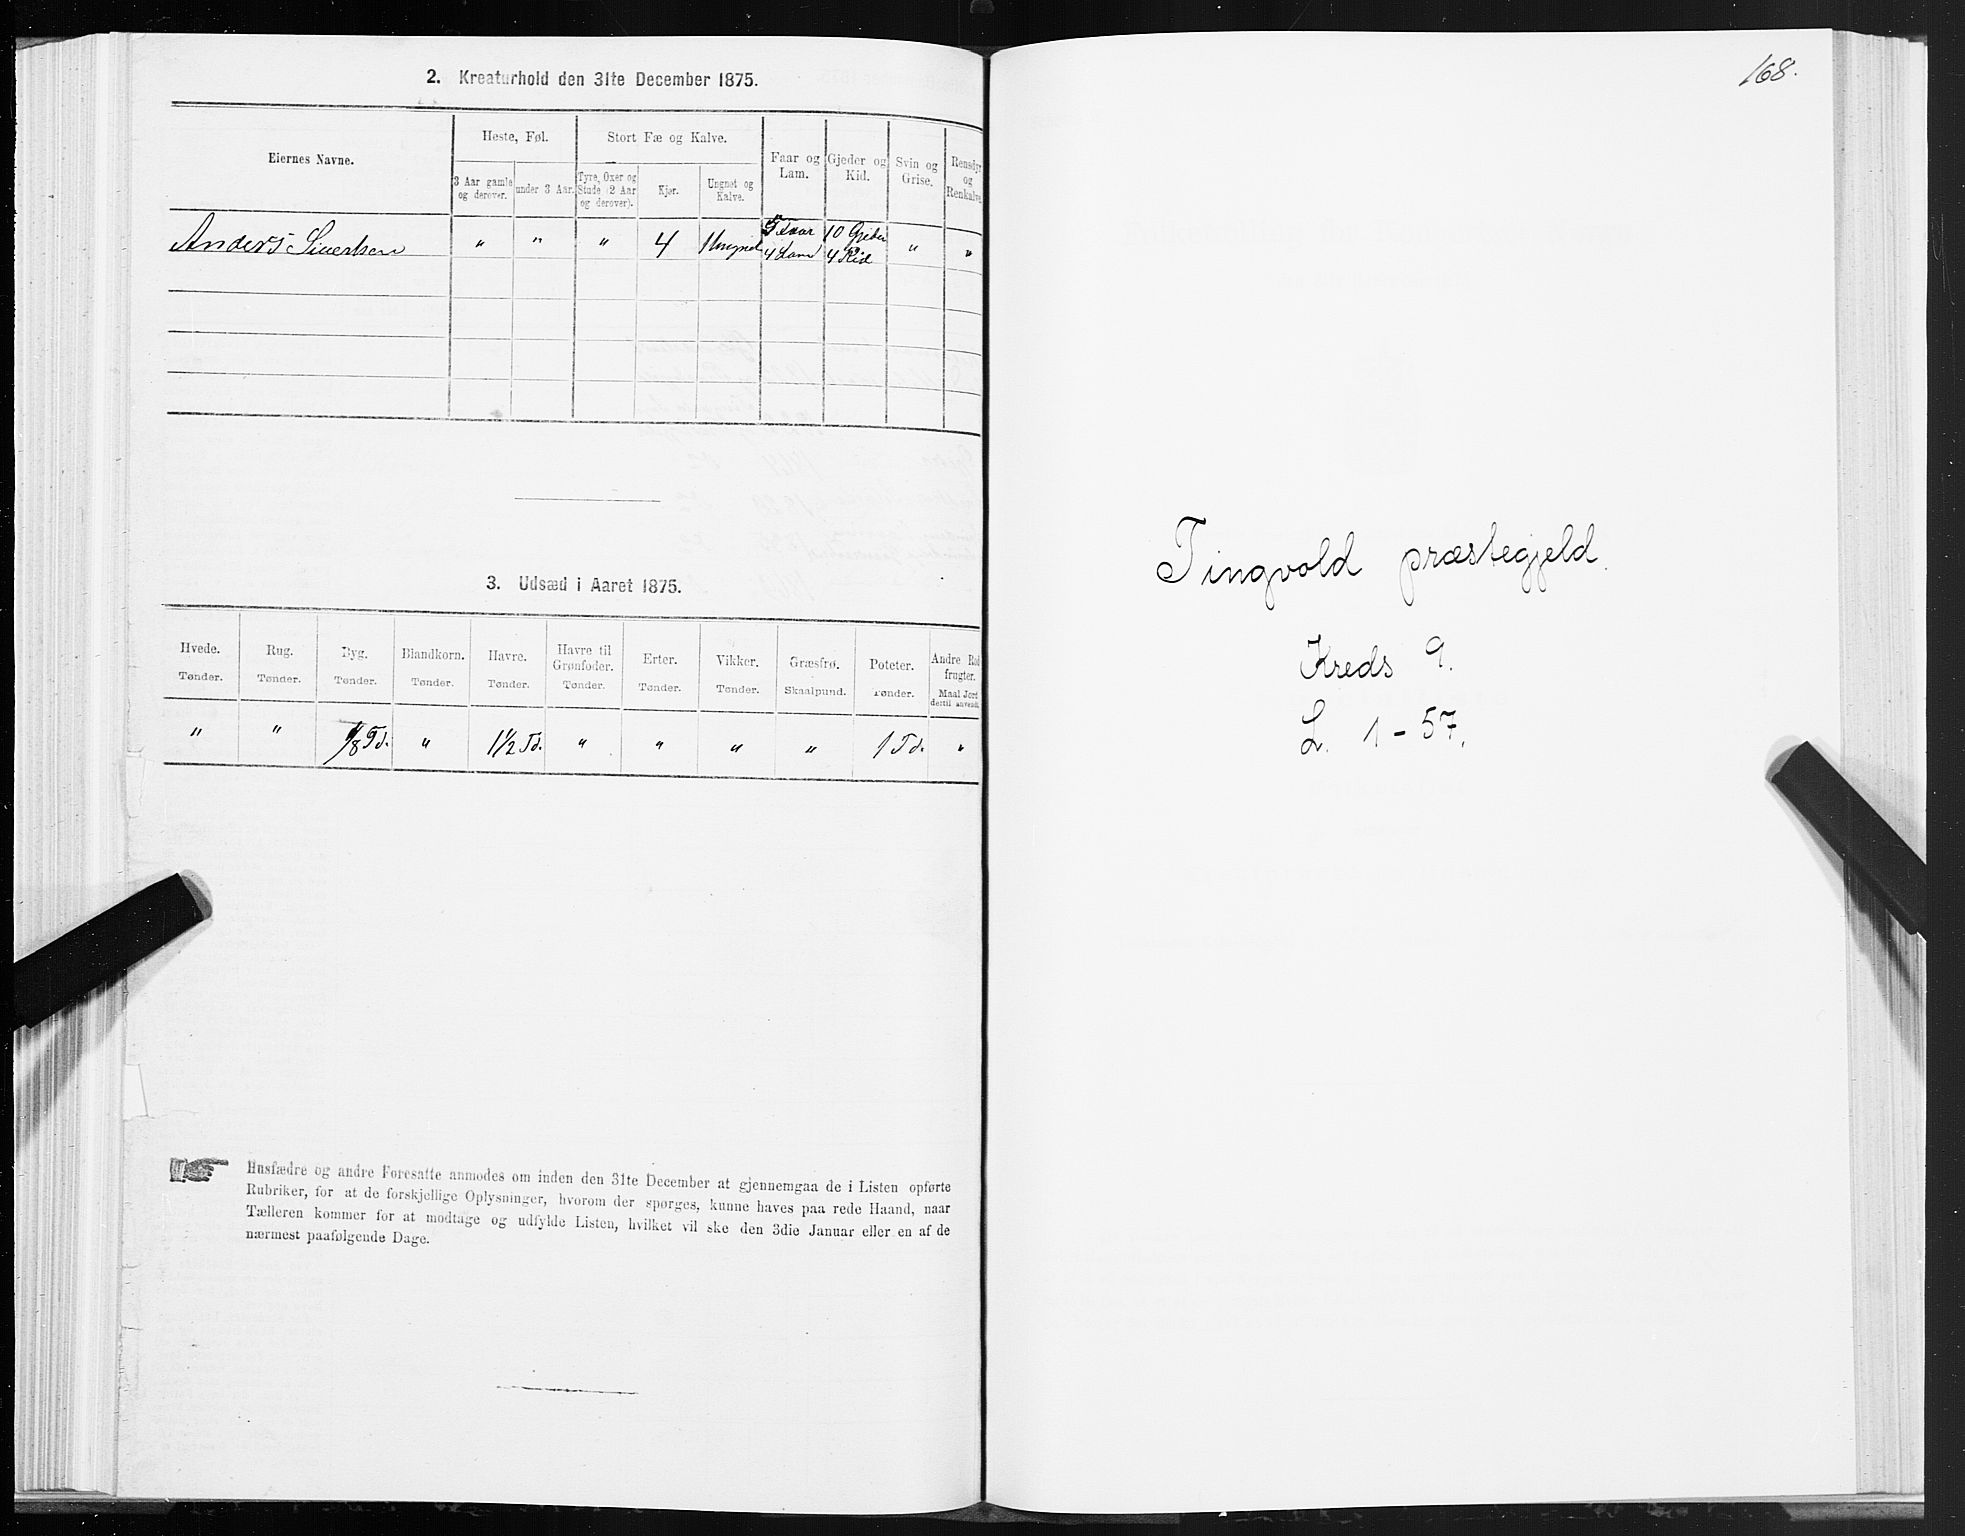 2. Kreaturhold den 31te December 1875.
Eiernes Navne.
Heste, Føl.
Stort Fæ og Kalve.
Faar og Lam.
Gjeder og Kid.
Svin og Grise.
Rensdyr og Renkalve.
3 Aar gamle og derover.
under 3 Aar.
Tyre, Oxer og Stude (2 Aar og derover).
Kjør.
Ungnøt og Kalve.
Anders Siuertsen " " " 4 1 Ungnød 5 Faar 10 Gjeder " "
4 Lam 4 Kid
3. Udsæd i Aaret 1875.
Hvede. Rug. Byg. Blandkorn. Havre. Havre til Grønfoder. Erter. Vikker. Græsfrø. Poteter. Andre Rodfrugter.
Tønder. Tønder. Tønder. Tønder. Tønder. Tønder. Tønder. Tønder. Skaalpund. Tønder. Maal Jord dertil anvendt.
" " 1/8 Td. " 1 1/2 Td. " " " " 1 Td. "
Husfædre og andre Foresatte anmodes om inden den 31te December at gjennemgaa de i Listen opførte
Rubriker, for at de forskjellige Oplysninger, hvorom der spørges, kunne haves paa rede Haand, naar
Tælleren kommer for at modtage og udfylde Listen, hvilket vil ske den 3die Januar eller en af de
nærmest paafølgende Dage.
168.
Tingvold præstegjeld.
Kreds 9.
L. 1 - 57.